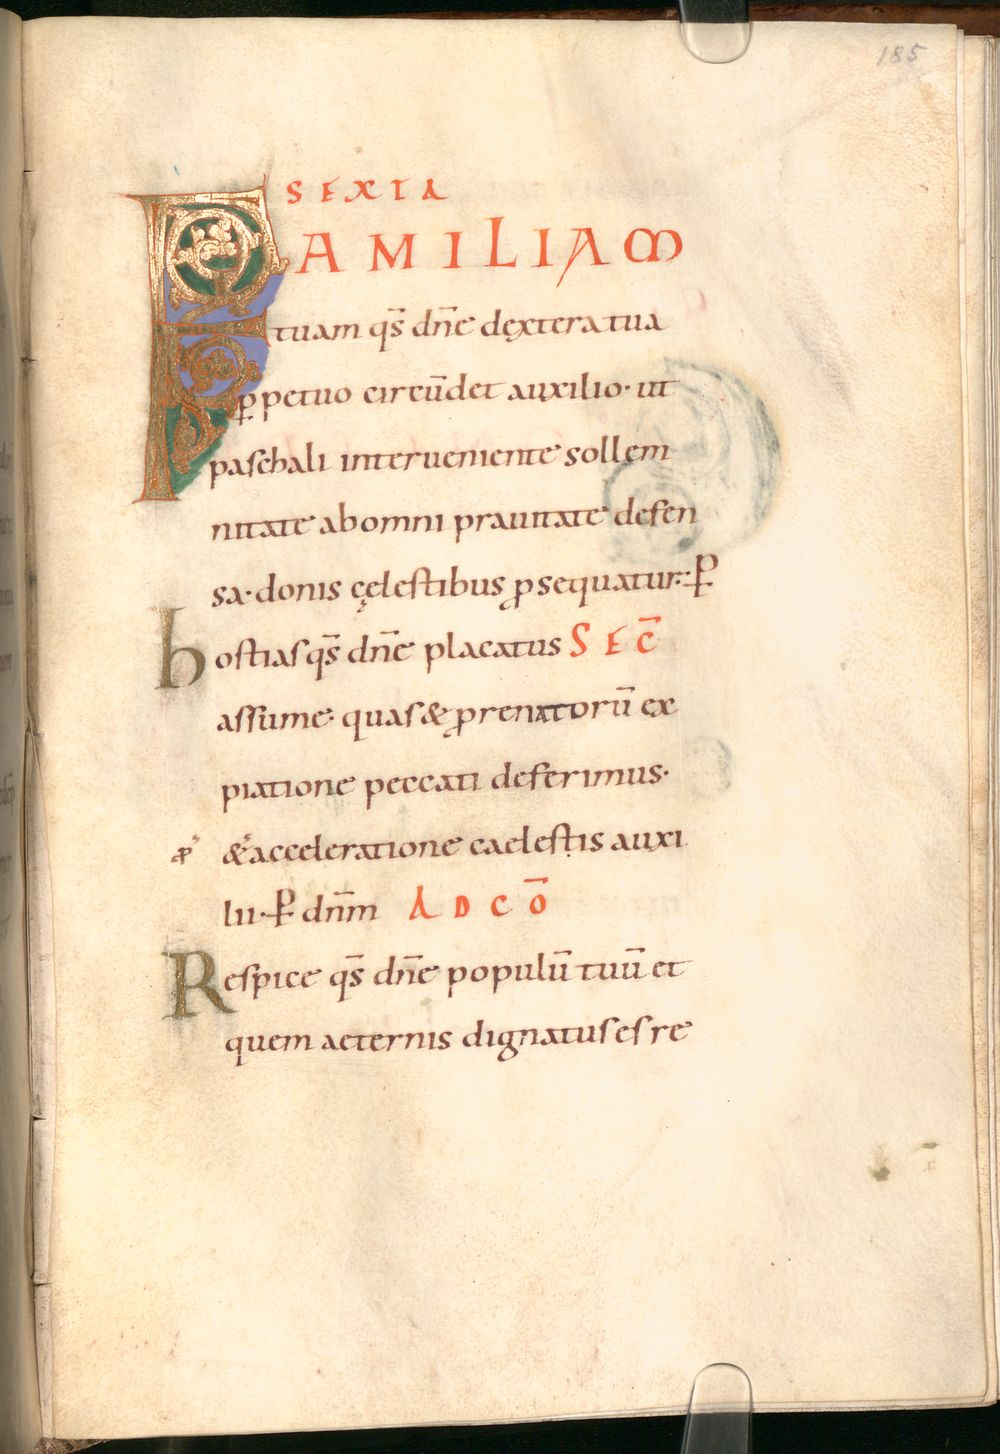 185
SEXTA
FAMILIAM
tuam qs̄ dn̄e dextera tua
ꝑpetuo circūdet auxilio· ut
paschali interueniente sollem
nitate ab omni prauitate defen
sa· donis cęlestibus ꝓsequatur· P̄
hostias qs̄ dn̄e placatus SEC̄
assume· quas & ꝓ renatorū ex
piatione peccati deferimus·
& acceleratione caelestis auxi
lii· P̄ dn̄m AD CŌ
Respice qs̄ dn̄e populū tuū et
quem aeternis dignatus es re